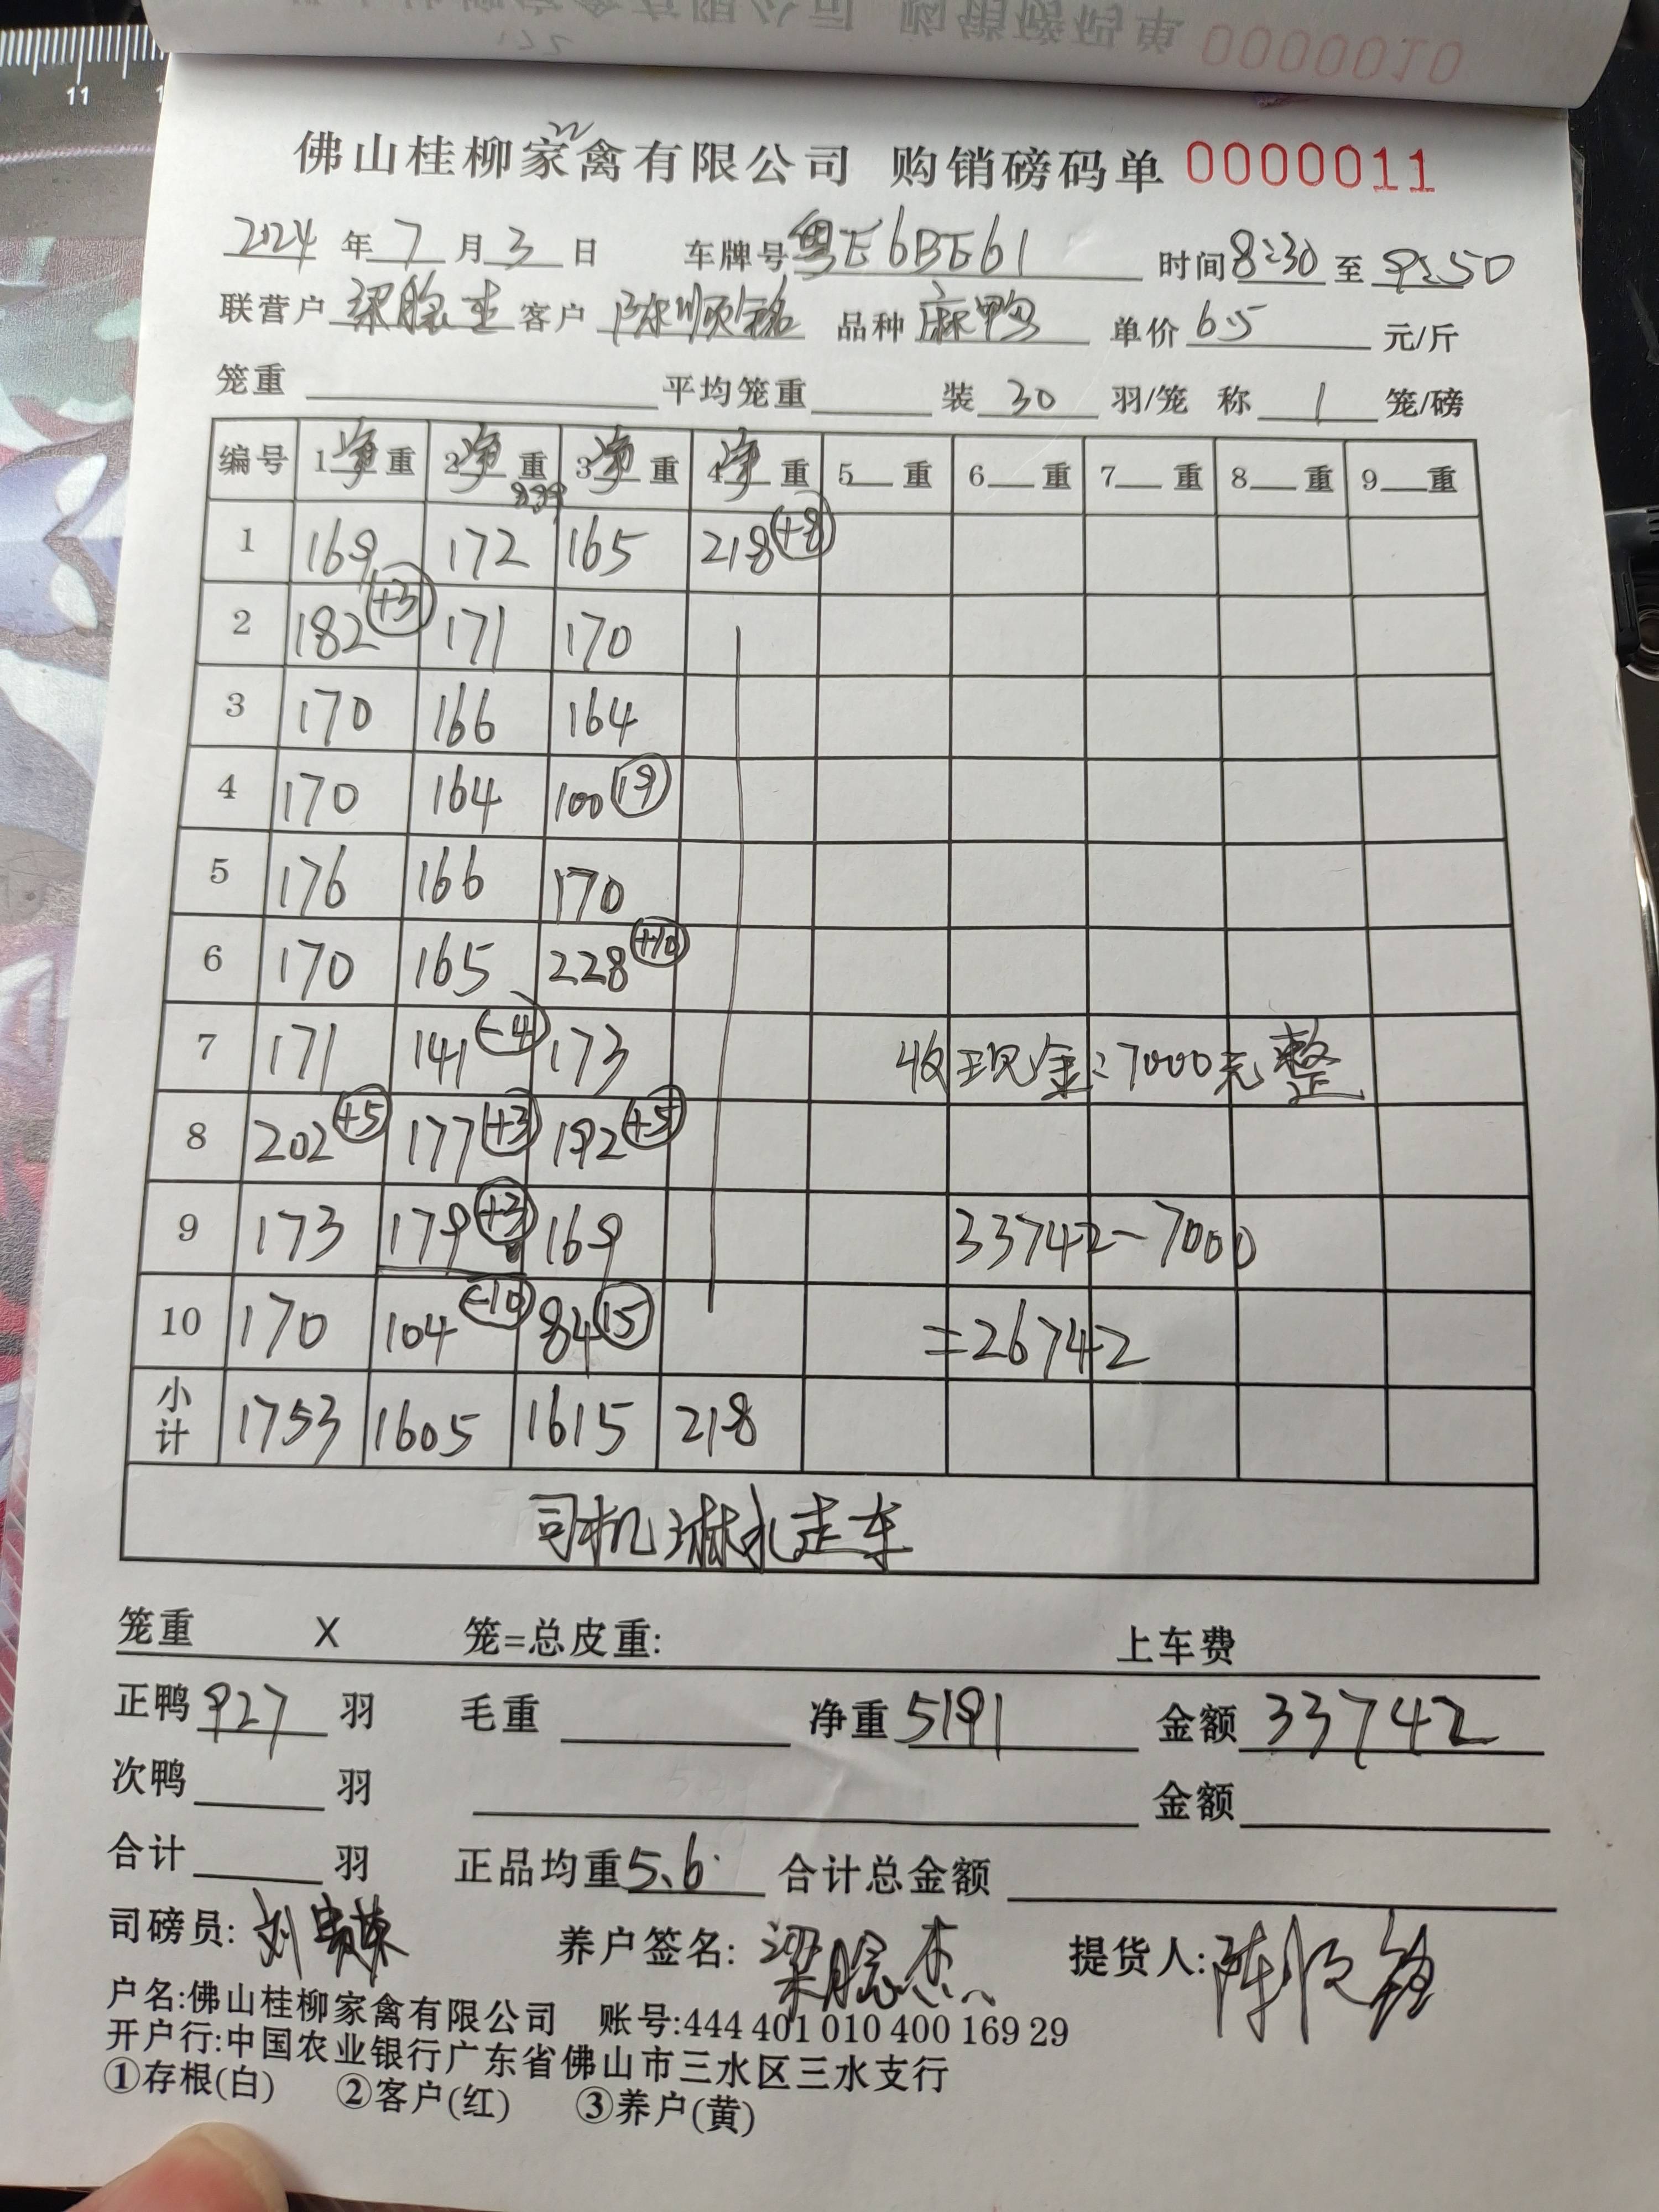 佛山桂柳家禽有限公司 购销磅码单 0000011
2024 年 7 月 3 日 车牌号 粤E6BE61 时间 8:30 至 9:50
联营户 客户 陈顺铭 品种 麻鸭 单价 6.5 元/斤
笼重 平均笼重 装 30 羽/笼 称 1 笼/磅
编号 1净重 2净重 3净重 4净重 5 重 6 重 7 重 8 重 9 重
1 169 172 165 218 (+8)
2 182 (+3) 171 170
3 170 166 164
4 170 164 100 (19)
5 176 166 170
6 170 165 228 (+10)
7 171 141 (-4) 173 收现金:7000元整
8 202 (+5) 177 (+3) 192 (+5)
9 173 179 (+3) 169 33742-7000
10 170 104 (-10) 84 (15) =26742
小计 1753 1605 1615 218
司机淋水走车
笼重 X 笼=总皮重: 上车费
正鸭 927 羽 毛重 净重 5191 金额 33742
次鸭 羽 金额
合计 羽 正品均重 5.6 合计总金额
司磅员: 养户签名: 提货人:
户名:佛山桂柳家禽有限公司 账号:444 401 010 400 169 29
开户行:中国农业银行广东省佛山市三水区三水支行
①存根(白) ②客户(红) ③养户(黄)